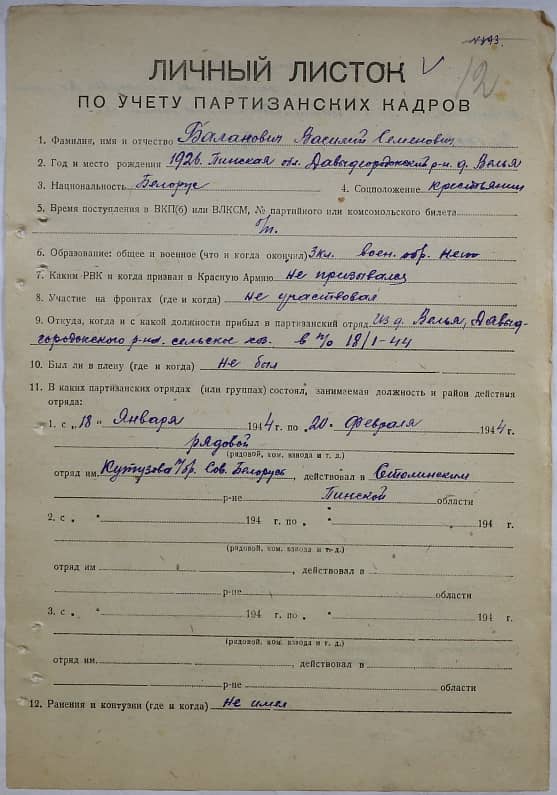 №193.
12
ЛИЧНЫЙ ЛИСТОК
ПО УЧЕТУ ПАРТИЗАНСКИХ КАДРОВ
1. Фамилия, имя и отчество Баланович Василий Семенович
2. Год и место рождения 1926. Пинская обл. Давыдгородокский р-н. д. Велья
3. Национальность Белорус 4. Соцположение крестьянин
5. Время поступления в ВКП(б) или ВЛКСМ, № партийного или комсомольского билета
б/п.
6. Образование: общее и военное (что и когда окончил) 3кл. воен. обр. нет
7. Каким РВК и когда призван в Красную Армию не призывался
8. Участие на фронтах (где и когда) не участвовал
9. Откуда, когда и с какой должности прибыл в партизанский отряд из д. Велья, Давыд-
городокского р-на. сельское хоз. в п/о 18/I-44
10. Был ли в плену (где и когда) не был
11. В каких партизанских отрядах (или группах) состоял, занимаемая должность и район действия
отряда:
1. с „18" Января 1944 г. по „20" Февраля 1944 г.
рядовой
(рядовой, ком. взвода и т. д.)
отряд им. Кутузова п/бр. Сов. Белорусь, действовал в Столинском
р-не Пинской области
2. с „ " 194 г. по „ " 194 г.
(рядовой, ком. взвода и т. д.)
отряд им , действовал в
р-не области
3. с „ " 194 г. по „ " 194 г.
(рядовой, ком. взвода и т. д.)
отряд им. , действовал в
р-не области
12. Ранения и контузии (где и когда) не имел